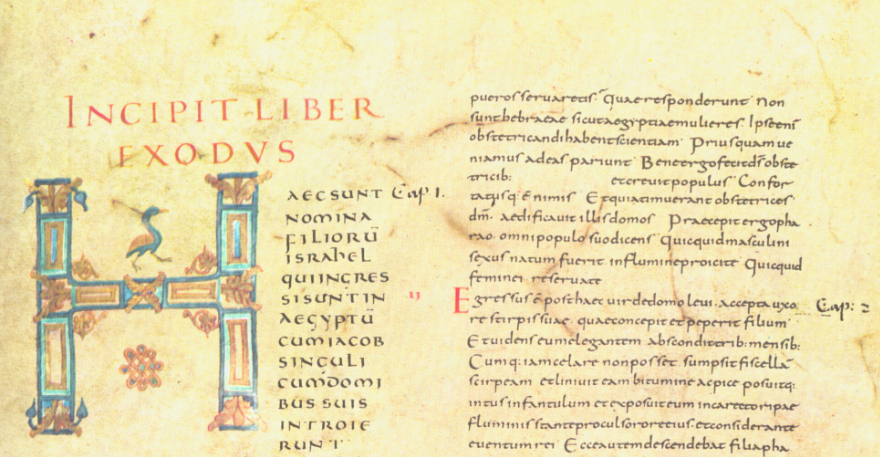 INCIPIT·LIBER
EXODVS
H
AEC SUNT Cap 1.
NOMINA
FILIORŪ
ISRAHEL
QUI INGRES
SI SUNT IN
AEGYPTŪ
CUM IACOB
SINGULI
CUM DOMI
BUS SUIS
INTROIE
RUNT
pueros servaretis. Quae responderunt Non
sunt hebraeae sicut aegyptiae mulieres Ipsae enī
obstetricandi habent scientiam Priusquam ve
niamus ad eas pariunt Bene ergo fecit ds obste
tricib; et crevit populus Confor
tatusq; ē nimis Et quia timuerant obstetrices
dm̄ aedificavit illis domos Praecepit ergo pha
rao omni populo suo dicens Quicquid masculini
sexus natum fuerit in flumine proicite Quicquid
feminei reservate
II Egressus ē post haec vir de domo levi accepta uxo Cap: 2
re stirpis suae quae concepit et peperit filium
Et videns eum elegantem abscondit trib; mensib;
Cumq; iam celare non posset sumpsit fiscellā
scirpeam et linivit eam bitumine ac pice posuitq;
intus infantulum et exposuit eum in carecto ripae
fluminis stante procul sorore eius et considerante
eventum rei Ecce autem descendebat filia pha